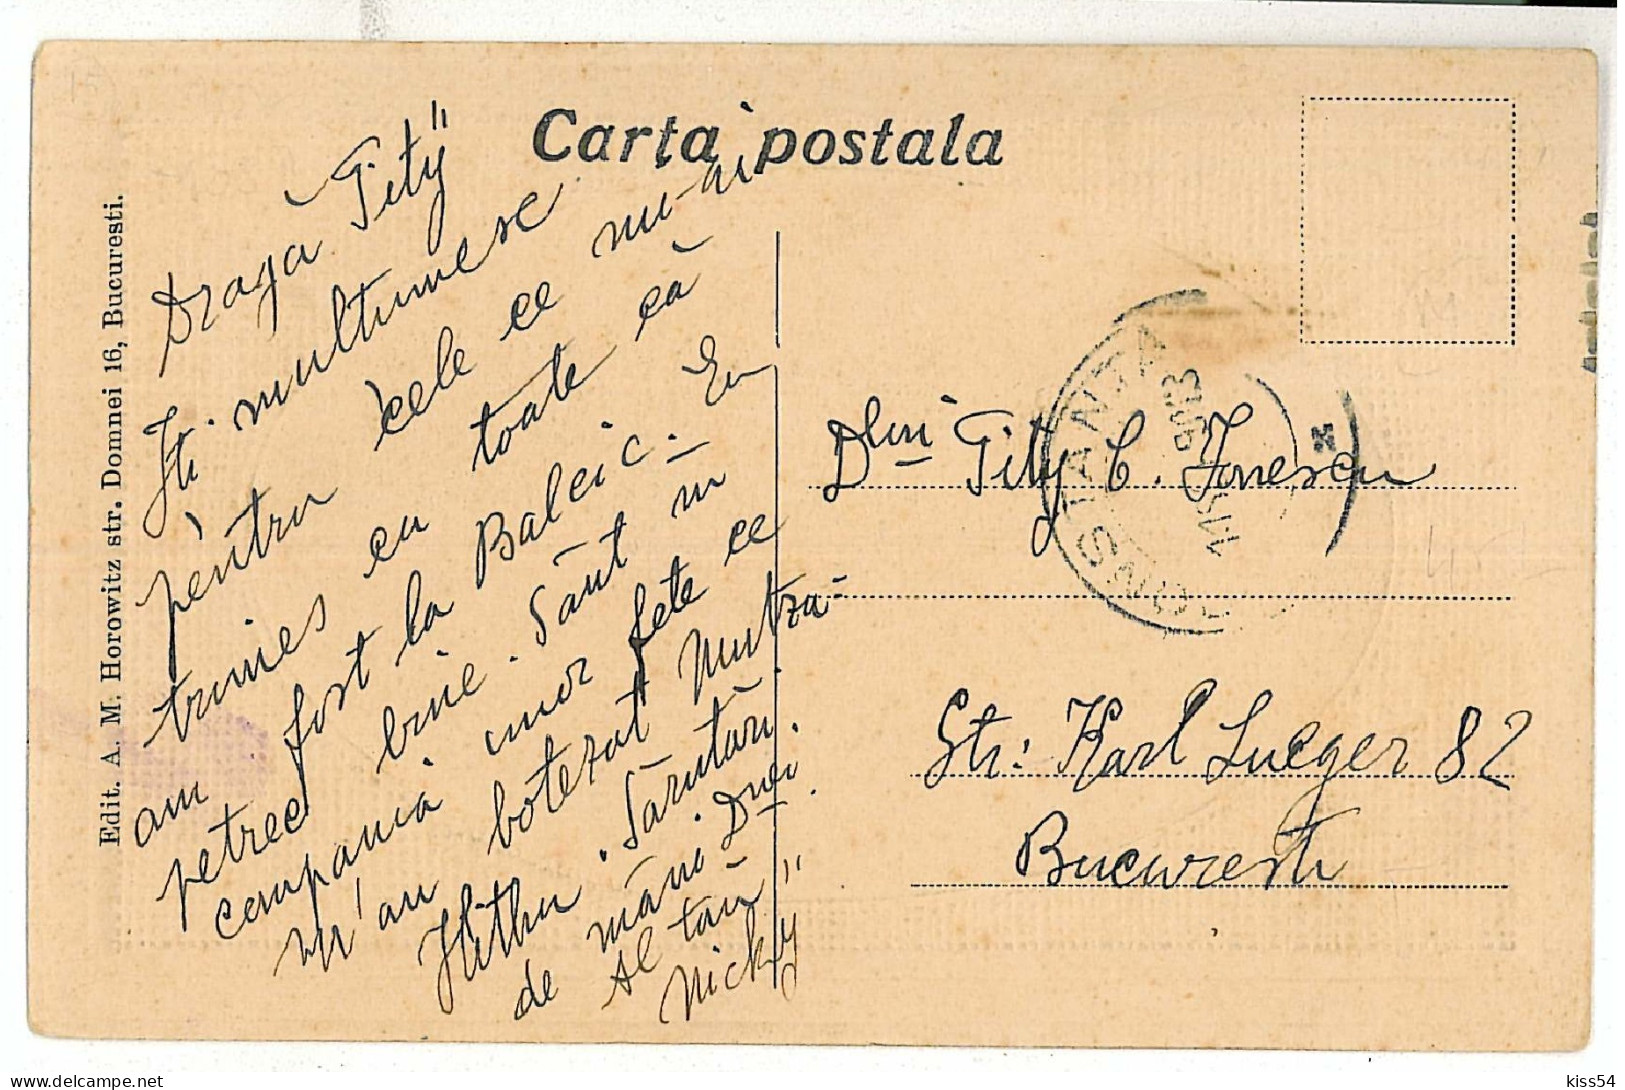 Carta postala
Edit. A. M. Horowitz str. Domnei 16, Bucuresti.
Dragă Gity"
Iti multumesc
pentru cele ce mi-ai
trimes cu toate că
am fost la Balcic. Eu
petrec bine. Sânt în
compania unor fete ce
m'au botezat Mutza-
. Sărutări.
de mâni Dnei.
Al tău"
Nicky
Dlui Gity C. Ionescu
Str: Karl Lueger 82
Bucuresti
CONSTANTA
kiss54